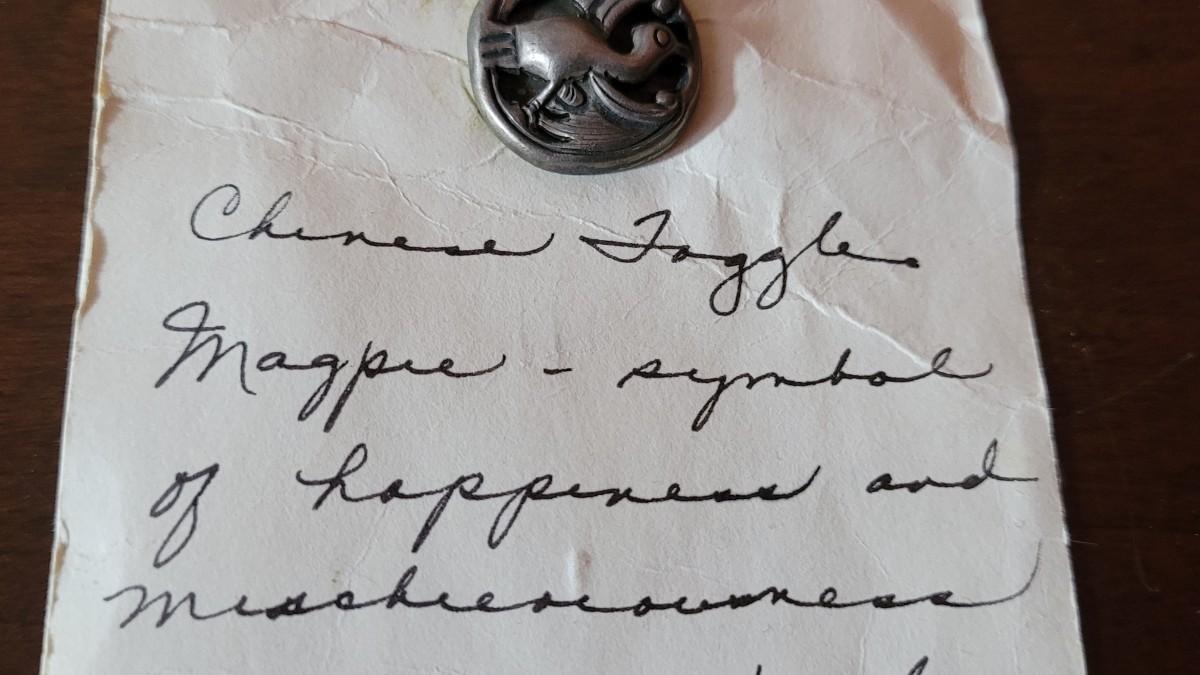 Chinese Toggle.
Magpie - symbol
of happiness and
mischieviousness